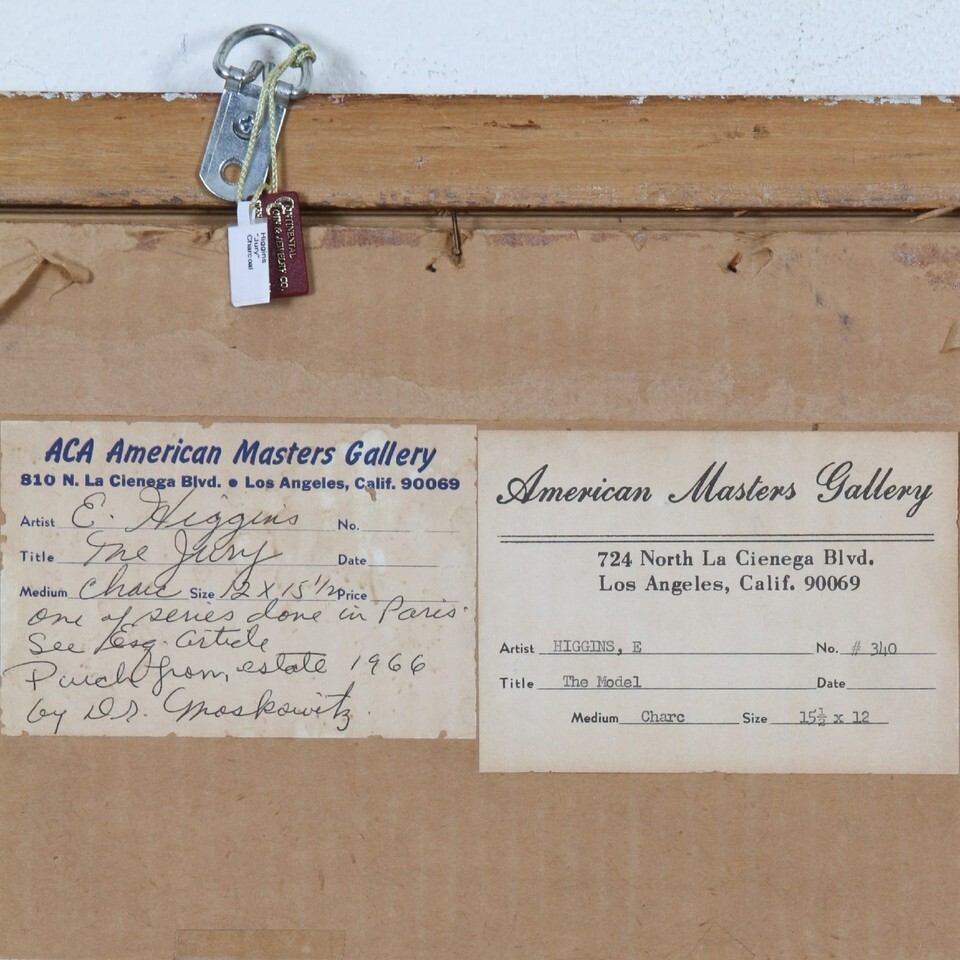 CONTINENTAL
COIN & JEWELRY CO.
Higgins
"Jury"
Charcoal
ACA American Masters Gallery
810 N. La Cienega Blvd. • Los Angeles, Calif. 90069
Artist E. Higgins No.
Title The Jury Date
Medium Charc Size 12 X 15 1/2 Price
one of series done in Paris.
See Esq. article
Purch from estate 1966
by Dr. Moskowitz.
American Masters Gallery
724 North La Cienega Blvd.
Los Angeles, Calif. 90069
Artist HIGGINS, E No. # 340
Title The Model Date
Medium Charc Size 15½ x 12